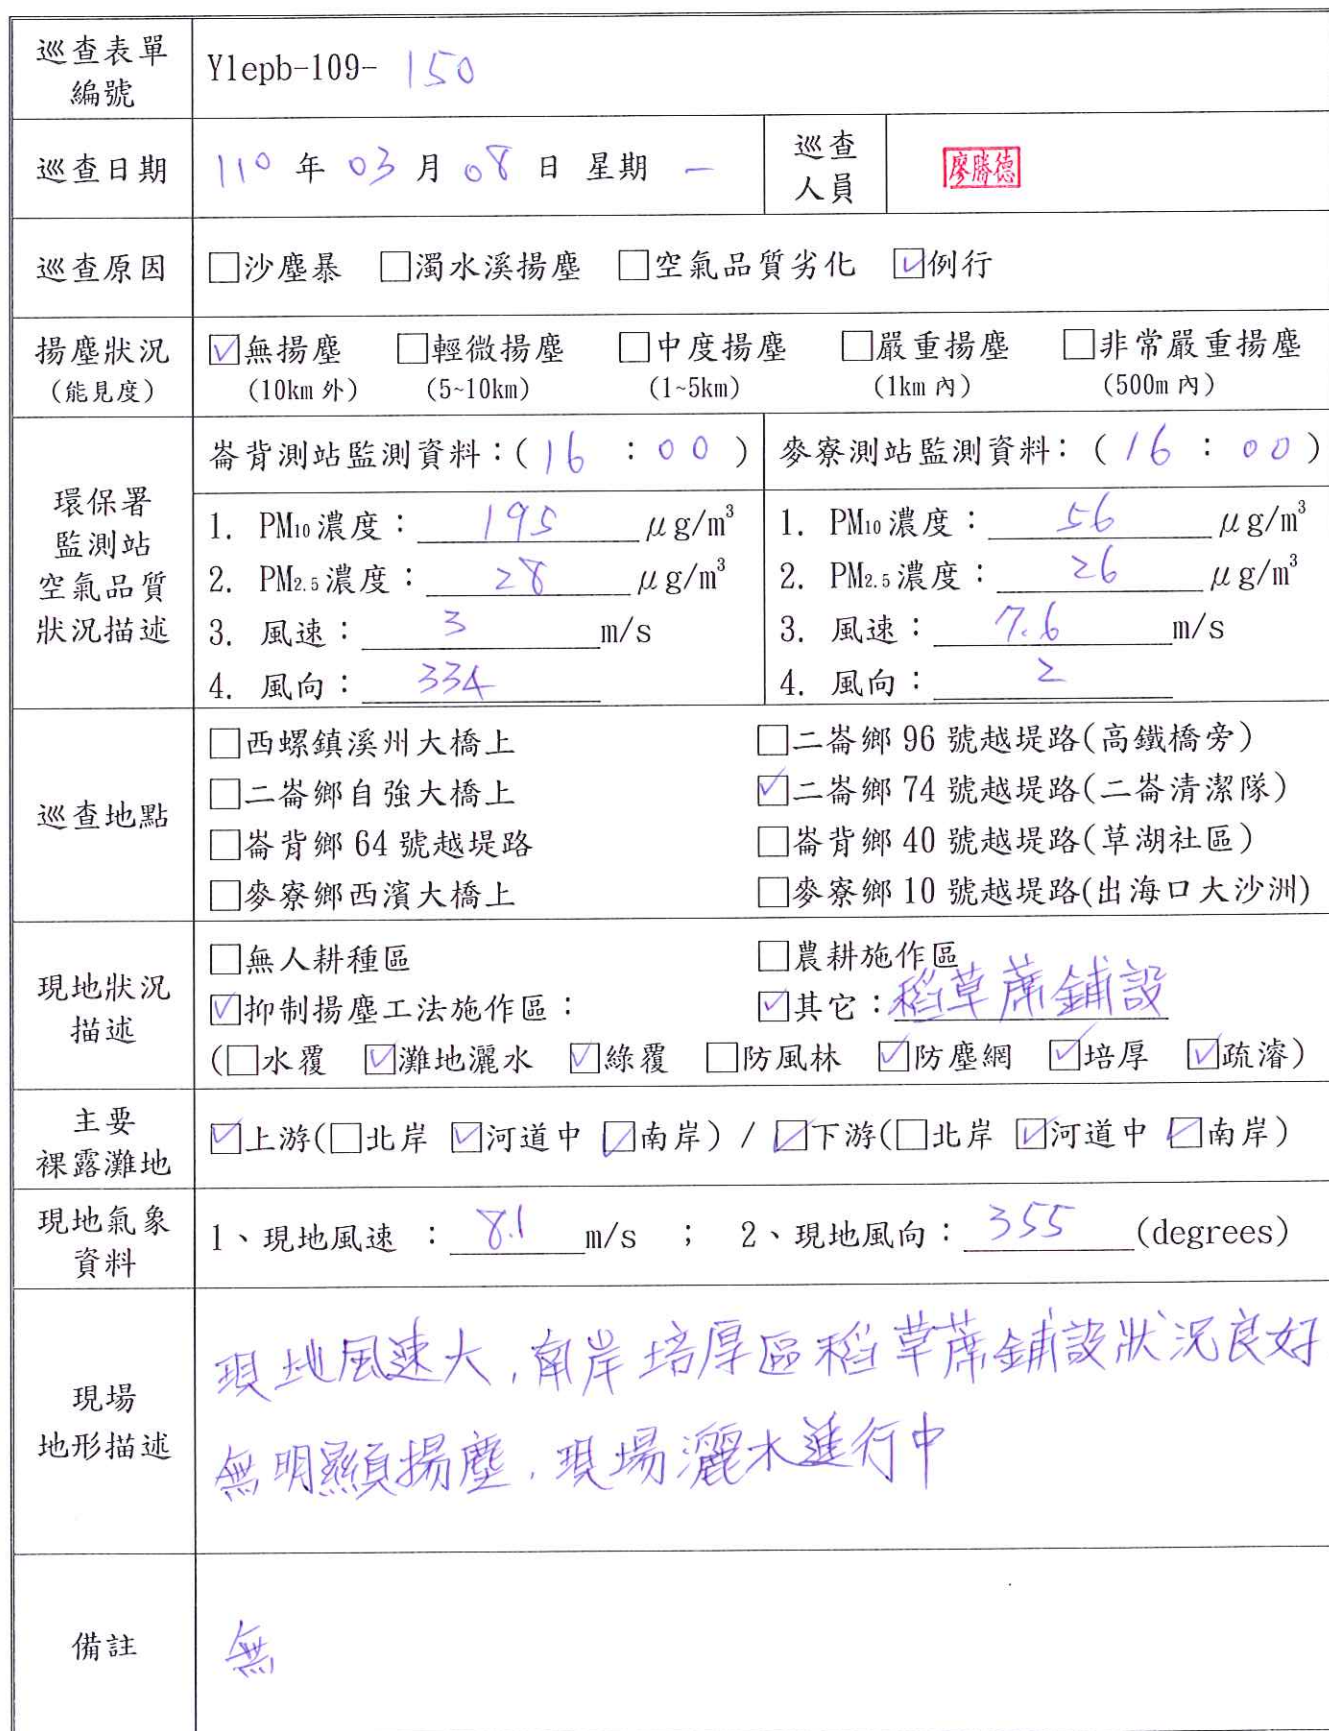 巡查表單
編號
Ylepb-109- 150
巡查日期
110 年 03 月 08 日 星期 一
巡查
人員
廖勝德
巡查原因
□沙塵暴 □濁水溪揚塵 □空氣品質劣化 ☑例行
揚塵狀況
(能見度)
☑無揚塵 □輕微揚塵 □中度揚塵 □嚴重揚塵 □非常嚴重揚塵
(10km 外) (5~10km) (1~5km) (1km 內) (500m 內)
環保署
監測站
空氣品質
狀況描述
崙背測站監測資料：(16 : 00)
1. PM10濃度：195 μg/m³
2. PM2.5濃度：28 μg/m³
3. 風速：3 m/s
4. 風向：334
麥寮測站監測資料：(16 : 00)
1. PM10濃度：56 μg/m³
2. PM2.5濃度：26 μg/m³
3. 風速：7.6 m/s
4. 風向：2
巡查地點
□西螺鎮溪州大橋上 □二崙鄉 96 號越堤路(高鐵橋旁)
□二崙鄉自強大橋上 ☑二崙鄉 74 號越堤路(二崙清潔隊)
□崙背鄉 64 號越堤路 □崙背鄉 40 號越堤路(草湖社區)
□麥寮鄉西濱大橋上 □麥寮鄉 10 號越堤路(出海口大沙洲)
現地狀況
描述
□無人耕種區 □農耕施作區
☑抑制揚塵工法施作區： ☑其它：稻草蓆鋪設
(□水覆 ☑灘地灑水 ☑綠覆 □防風林 ☑防塵網 ☑培厚 ☑疏濬)
主要
裸露灘地
☑上游(□北岸 ☑河道中 ☑南岸) / ☑下游(□北岸 ☑河道中 ☑南岸)
現地氣象
資料
1、現地風速 ：8.1 m/s ； 2、現地風向：355 (degrees)
現場
地形描述
現地風速大,南岸培厚區稻草蓆鋪設狀況良好
無明顯揚塵,現場灑水進行中
備註
無